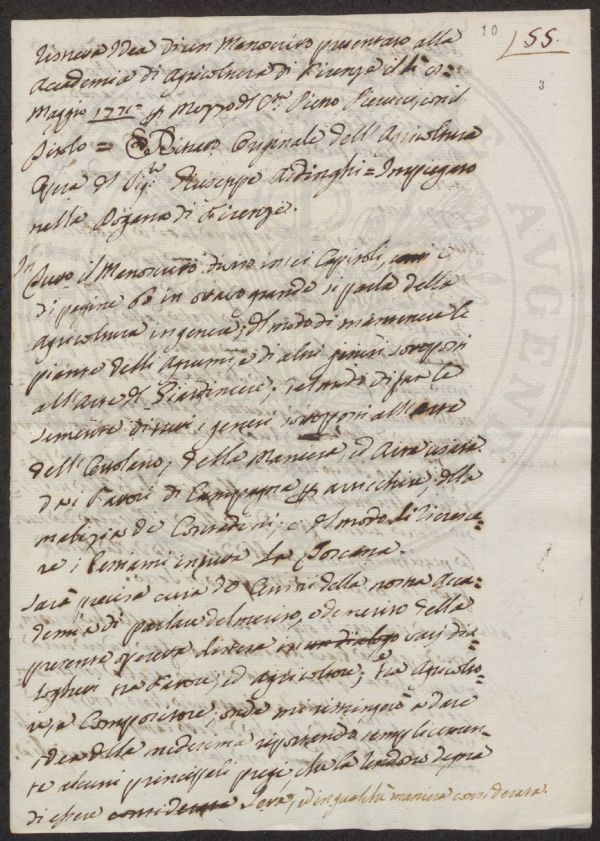 10
SS.
3
Ristretta Idea di un Manoscritto presentato alla
Accademia di Agricoltura di Firenze il di
Maggio 1771 p mezzo del Pietro con il
titolo = Ritratto Originale dell'Agricoltura
Opera del Sig.re Giuseppe Ardinghi = Impiegato
nella Dogana di Firenze.
In
tutto il Manoscritto diviso in sei Capitoli,
di pagine 60 in ottavo grande si parla della
Agricoltura in genere; del modo di mantenere le
piante delli Agrumi, e di altri generi sottoposti
all'arte del Giardiniere; del modo di far le
semente di tutti i generi sottoposti all'arte
dell'Ortolano; della Maniera, ed Arte usata
dai Fattori di Campagna p arricchire; della
malizia de Contadini, e del modo di accresce-
re i bestiami in tutta La Toscana.
Sarà precisa cura de Censori della nostra Acca-
demia di parlare del merito, o demerito della
presente operetta distesa in un dialogo varj dia-
loghi tra Fattore, ed Agricoltore, e tra Agricolto-
re, e Compositore, onde mi ristringerò a dare
idea della medesima riportando semplicemen-
te alcuni principali pregi che la rendono degna
di essere considerata Letta, ed in qualche maniera considerata.